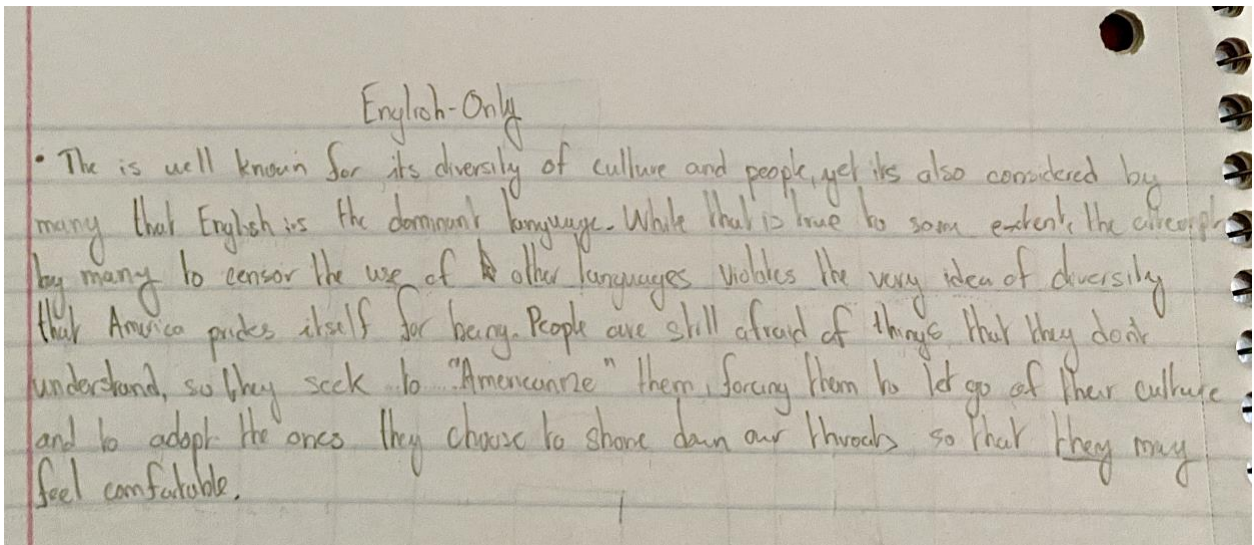 English-Only
• The is well known for its diversity of culture and people, yet its also considered by
many that English is the dominant language. While that is true to some extent, the
by many to censor the use of other languages violates the very idea of diversity
that America prides itself for being. People are still afraid of things that they don't
understand, so they seek to "Americannize" them, forcing them to let go of their culture
and to adopt the ones they choose to shove down our throats so that they may
feel comfortable.